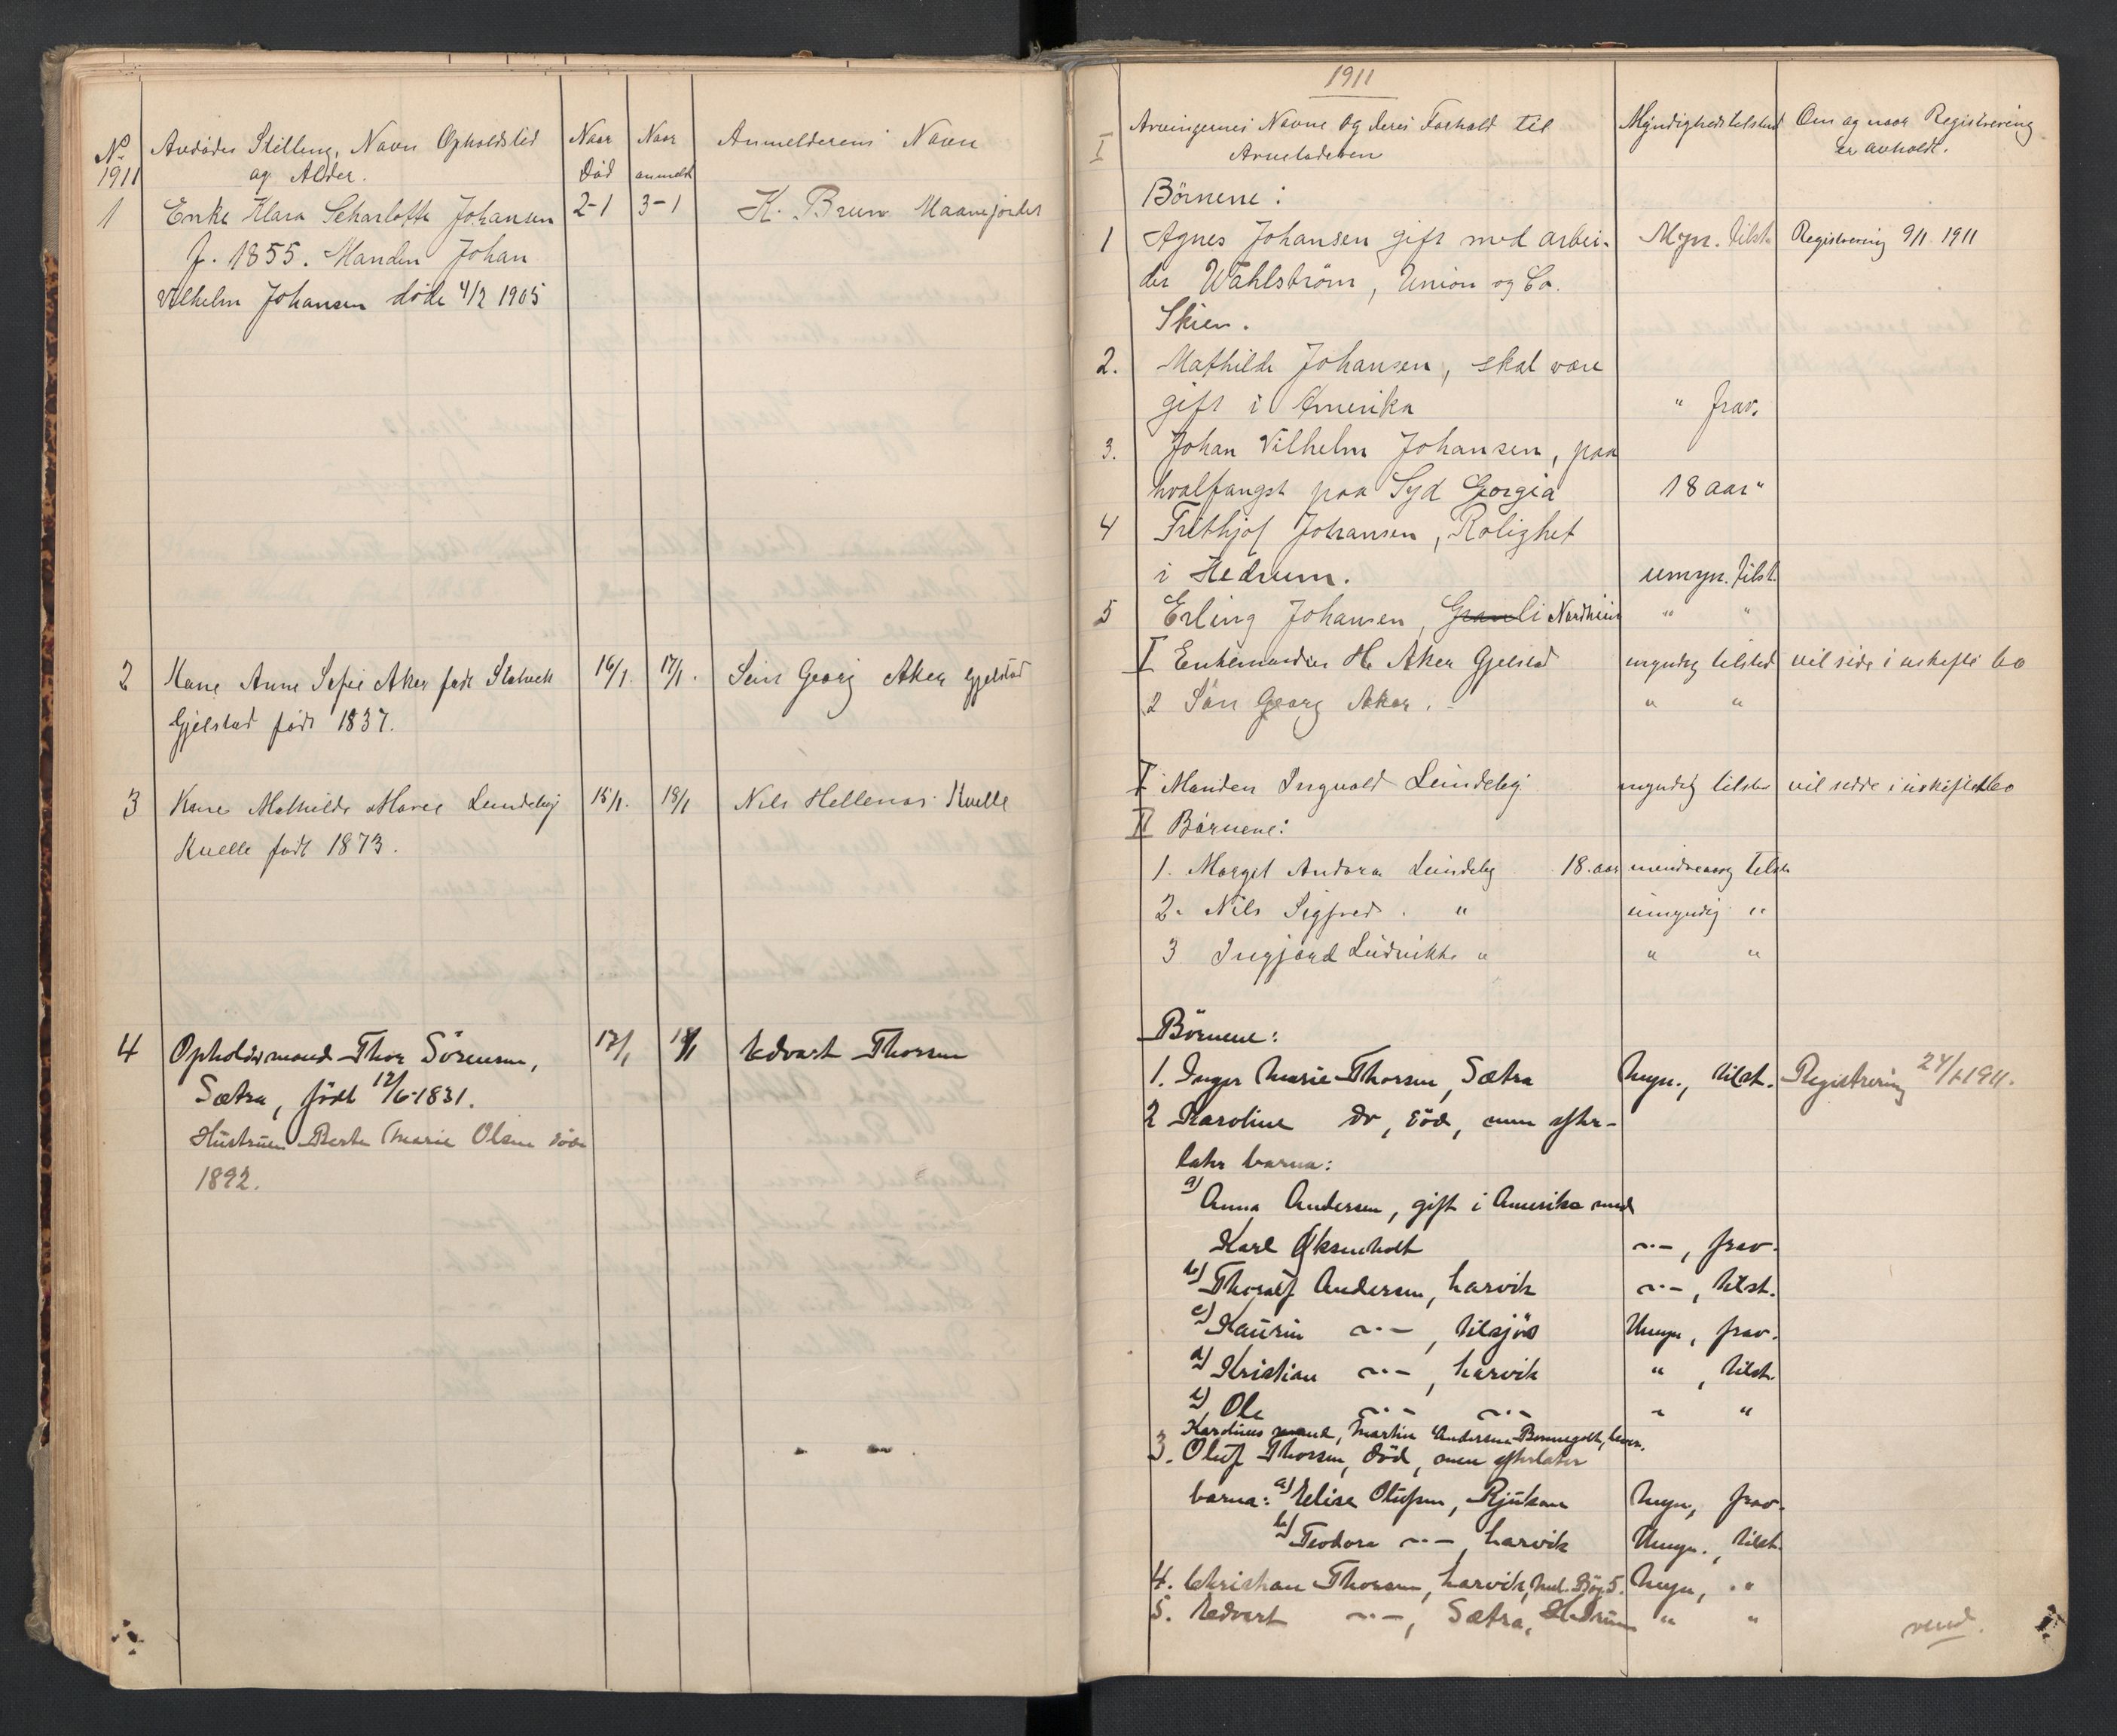 No
1911
Avdødes Stilling, Navn Opholdsted
og Alder.
Naar
Død
Naar
anmeldt
Anmelderens Navn
1
Enke Klara Scharlotte Johansen
f. 1855. Manden Johan
Vilhelm Johansen døde 4/2 1905
2-1
3-1
K. Brun
2
Kone Anne Sofie Aker født
Gjelstad født 1837.
16/1.
17/1.
Søn Georg Aker Gjelstad
3
Kone Mathilde Marie Lundeby
Kvelle født 1873.
15/1.
18/1
Nils Hellenes Kvelle
4
Opholdsmand Thor Sörensen,
Sætra, född 12/6-1831.
Hustruen Berte Marie Olsen död
1892.
17/1
18/1
Edvart Thorsen
1911
I
Arvingernes Navne og deres Forhold til
Arveladeren
Myndighedstilstand
Om og naar Registrering
er avholdt.
Börnene:
1
Agnes Johansen gift med arbei-
der Wahlström, Union og Co.
Skien.
Myn. tilst.
Registrering 9/1 1911
2.
Mathilde Johansen, skal være
gift i Amerika
" frav.
3.
Johan Vilhelm Johansen, paa
hvalfangst paa Syd Georgia
18 aar "
4
Frithjof Johansen, Rolighet
i Hedrum.
umyn. tilst.
5
Erling Johansen, Granli Nordheim
" "
I Enkemanden H. Aker Gjelstad
myndig tilsted
vil side i uskifte bo
2 Søn Georg Aker.
" "
I Manden Ingvald Lundeby
myndig tilsted
vil sidde i uskiftet bo
II Børnene:
1. Margit Andora Lundeby 18. aar
mindreaarig tilst
2. Nils Sigfred. "
umyndig "
3 Ingjard Ludvikke "
" "
Börnene:
1. Inger Marie Thorsen, Sætra
Myn., tilst.
Registrering 24/1 1911.
2 Karoline do, död, men efter-
later barna:
a) Anna Andersen, gift i Amerika med
Karl Oksenholt
-"-, frav.
b) Thoralf Andersen, Larvik
-"-, tilst.
c) Kaurin -"-, tilsjös
Umyn, frav.
d) Kristian -"-, Larvik
" , tilst.
e) Ole -"- -"-
" "
Karolines mand, Martin Andersen Bommegolt, lever.
3. Oluf Thorsen, död, men efterlater
barna: a) Elise Olufsen, Rjukan
Myn, frav.
b) Teodora -"-, Larvik
Umyn., tilst.
4. Christian Thorsen, Larvik, 5.
Myn, "
5. Edvart -"-, Sætra, Hedrum
" "
vend.